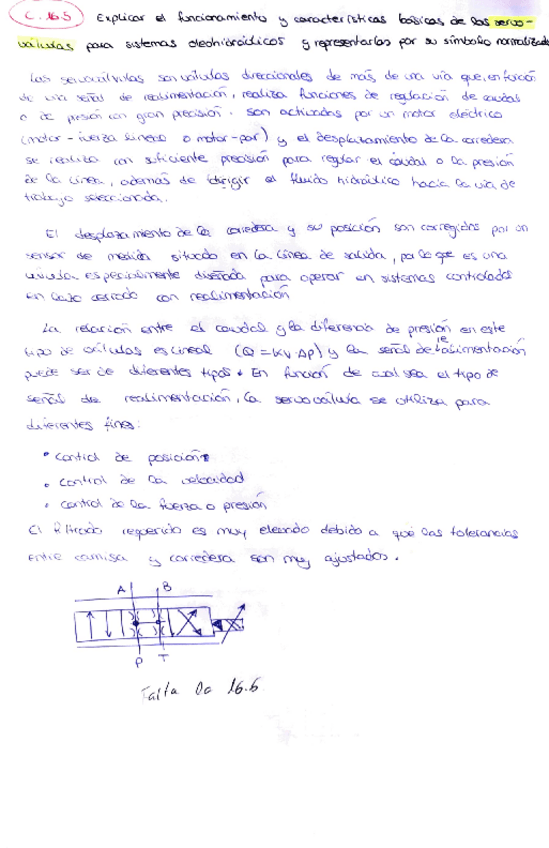 C.16.5 Explicar el funcionamiento y características básicas de las servo-
válvulas para sistemas oleohidráulicos y representarlas por su símbolo normalizado
Las servoválvulas son válvulas direccionales de más de una vía que, en función
de una señal de realimentación, realiza funciones de regulación de caudal
o de presión con gran precisión. Son activadas por un motor eléctrico
(motor-fuerza lineal o motor-par) y el desplazamiento de la corredera
se realiza con suficiente precisión para regular el caudal o la presión
de la línea, además de dirigir el fluido hidráulico hacia la vía de
trabajo seleccionada.
El desplazamiento de la corredera y su posición son corregidos por un
sensor de medida situado en la línea de salida, por lo que es una
válvula especialmente diseñada para operar en sistemas controlados
en lazo cerrado con realimentación
La relación entre el caudal y la diferencia de presión en este
tipo de válvulas es lineal (Q = KV·Δp) y la señal de realimentación
puede ser de diferentes tipos. En función de cual sea el tipo de
señal de realimentación, la servoválvula se utiliza para
diferentes fines:
• control de posición
• control de la velocidad
• control de la fuerza o presión
El filtrado requerido es muy elevado debido a que las tolerancias
entre camisa y corredera son muy ajustadas.
A B
P T
Falta la 16.6